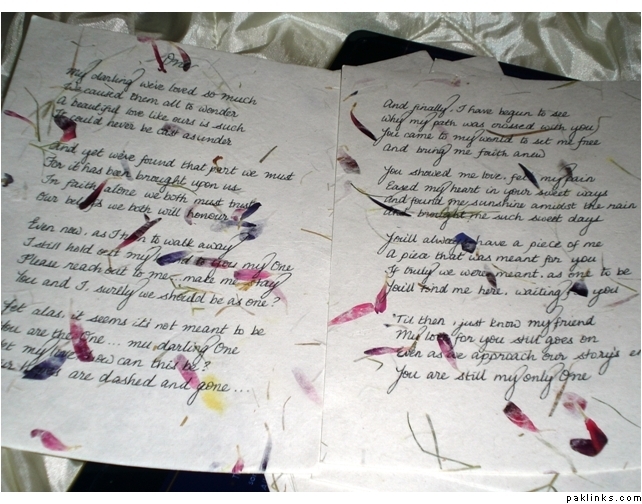 One
My darling we've loved so much
It caused them all to wonder
A beautiful love like ours is such
It could never be cast asunder
And yet we've found that part we must
For it has been brought upon us
In faith alone we both must trust
Our beliefs we both will honour
Even now, as I turn to walk away
I still hold out my hand to you my One
Please reach out to me... make me stay
You and I, surely we should be as one?
Yet alas, it seems it's not meant to be
You are the One... my darling One
my love how can this be?
are dashed and gone...
And finally, I have begun to see
Why my path was crossed with you
You came to my world to set me free
And bring me faith anew
You showed me love, felt my pain
Eased my heart in your sweet ways
And found me sunshine amidst the rain
And brought me such sweet days
You'll always have a piece of me
A piece that was meant for you
If truly we were meant, as one to be
You'll find me here, waiting for you
'Til then, just know my friend
My love for you still goes on
Even as we approach our story's
You are still my only One
paklinks.com